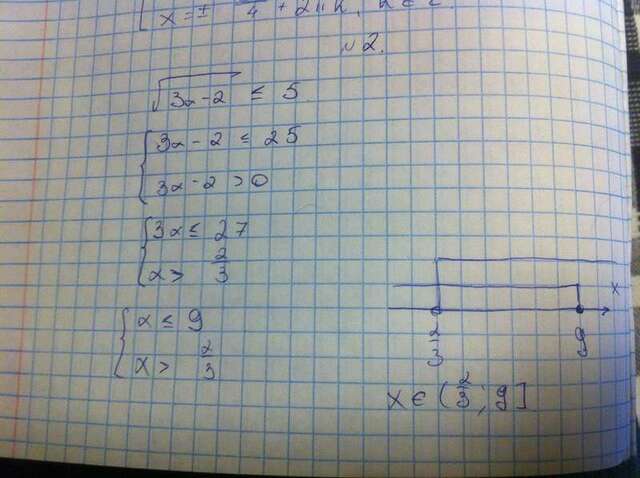 x = ± /4 + 2πk, k ∈ Z
№2.
√(3x-2) ≤ 5
{ 3x-2 ≤ 25
3x-2 > 0
{ 3x ≤ 27
x > 2/3
{ x ≤ 9
x > 2/3
x
2/3 9
x ∈ (2/3; 9]